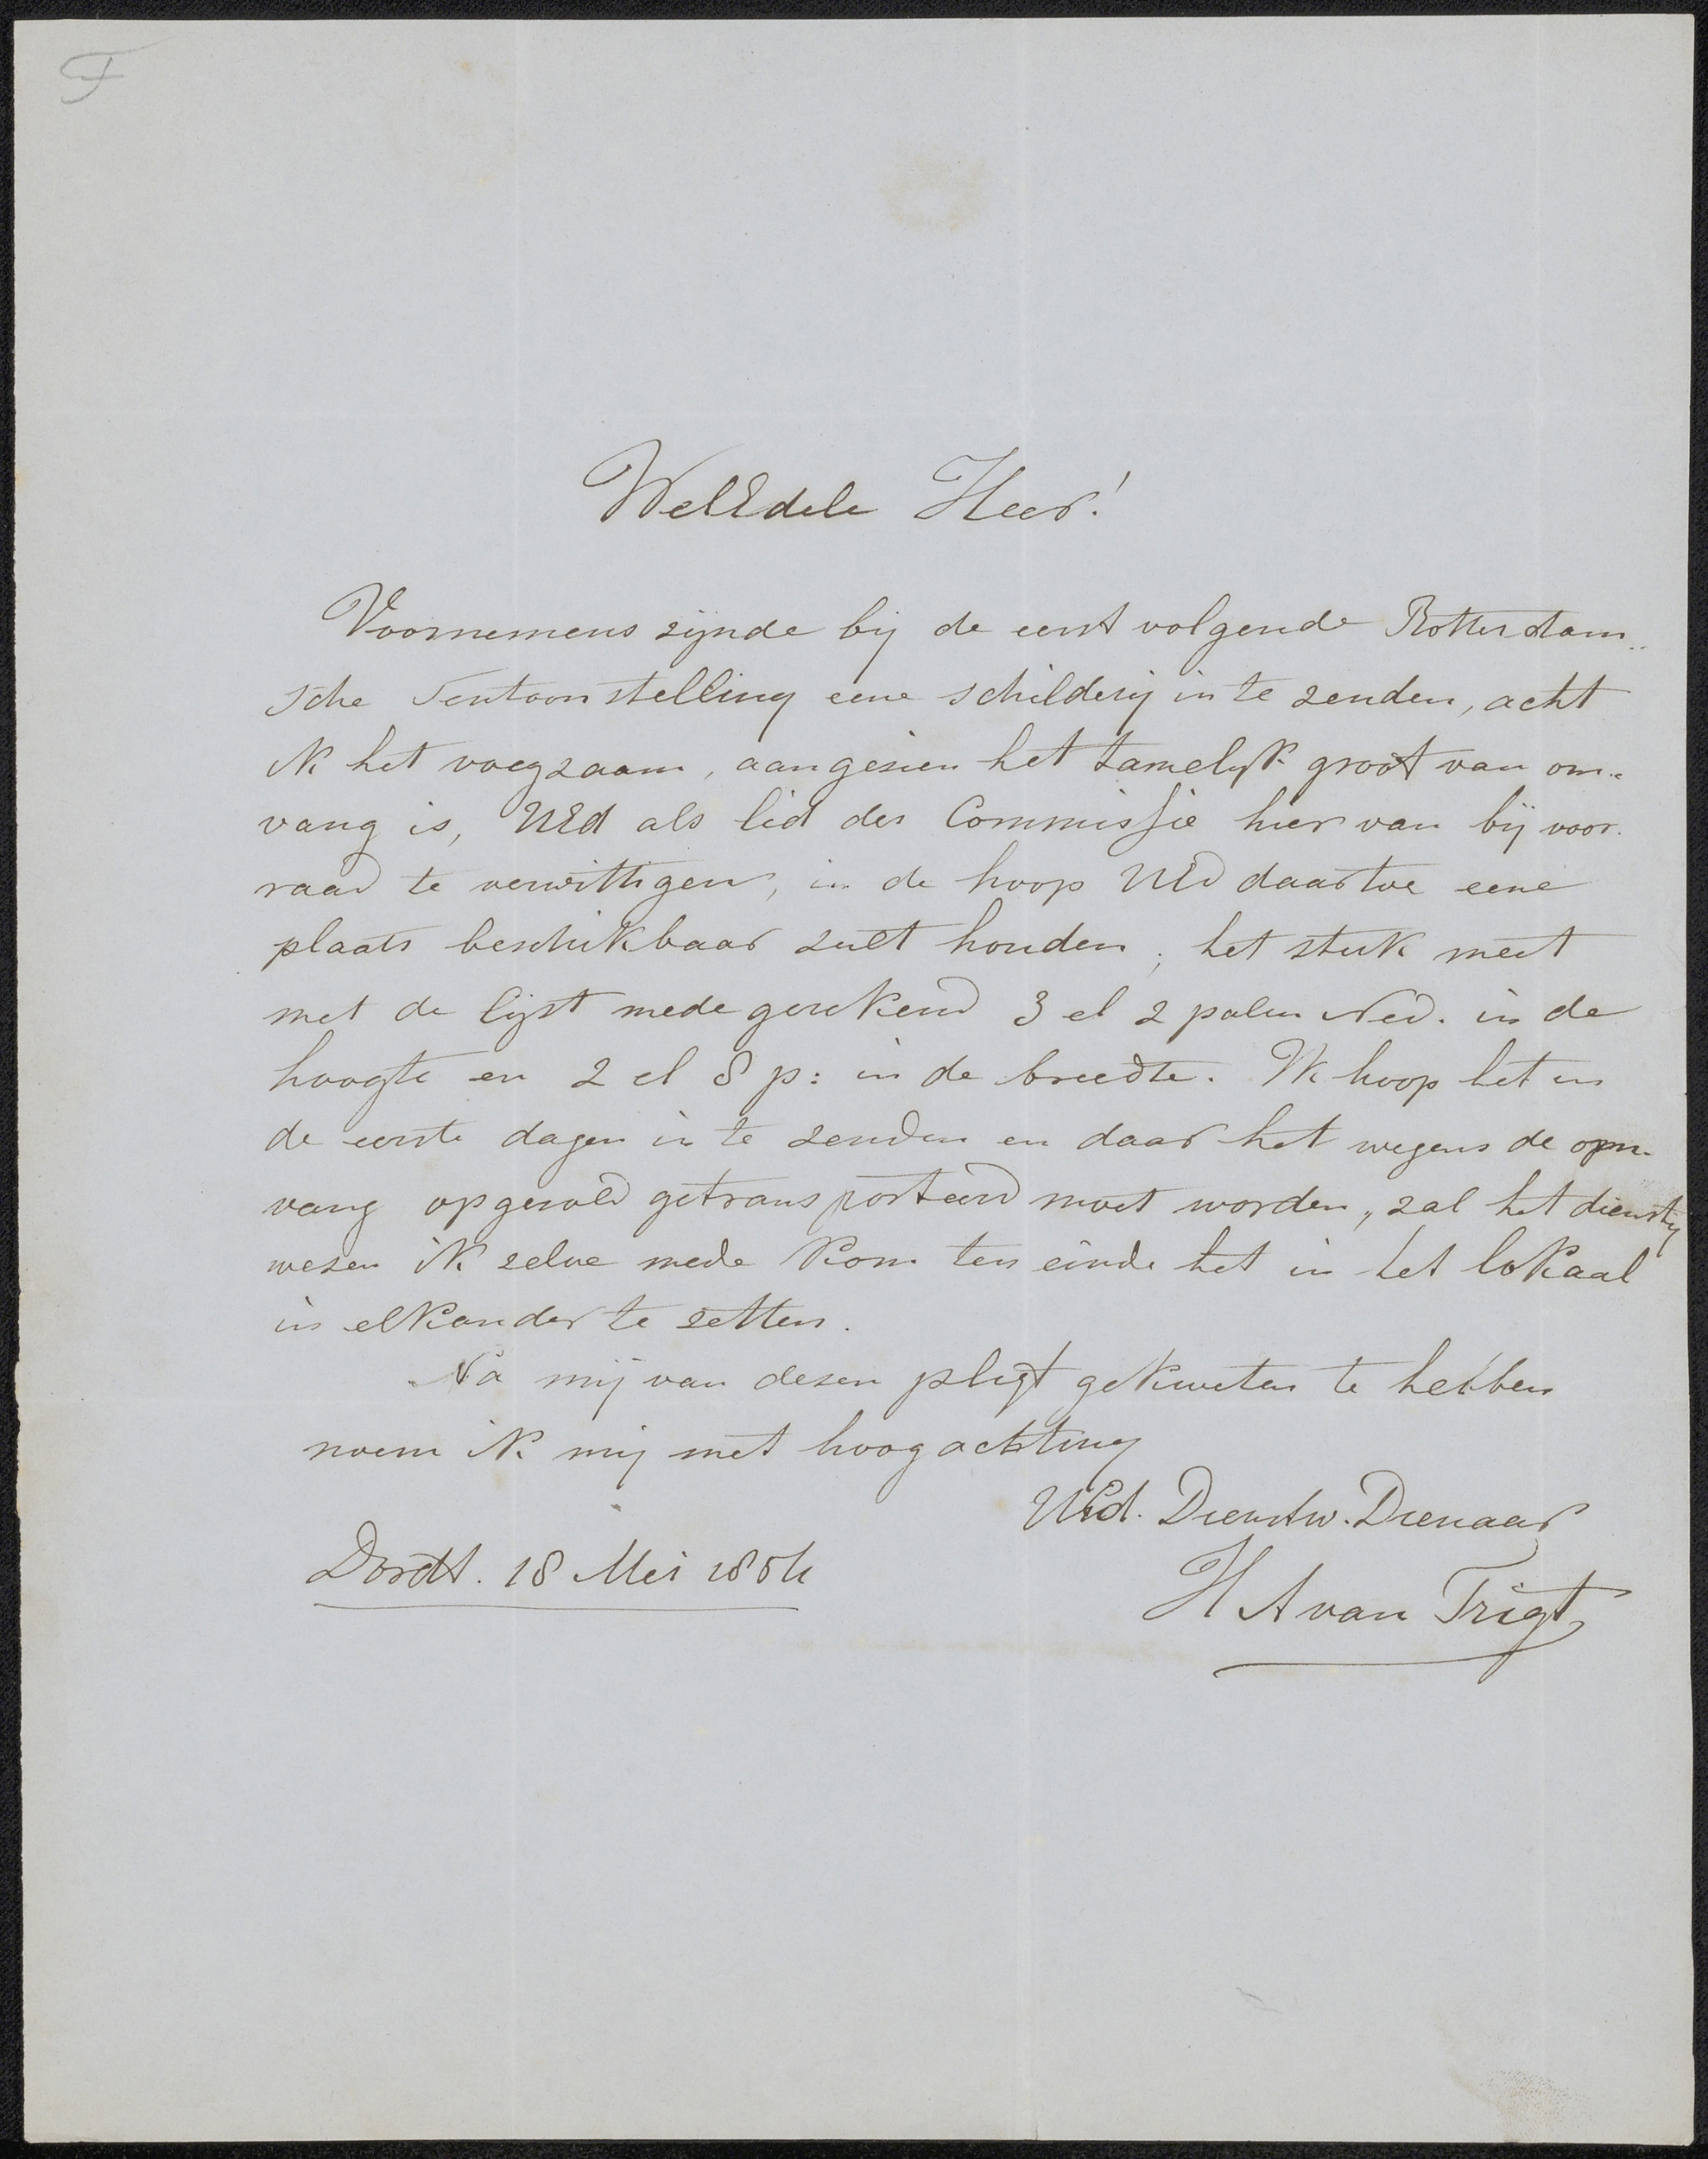 F
WelEdele Heer!
Voornemens zijnde bij de eerst volgende Rotterdam„
sche Tentoonstelling eene schilderij in te zenden, acht
ik het voegzaam, aangezien het tamelijk groot van om„
vang is, UEd als lid der Commissie hier van bij voor„
raad te verwittigen, in de hoop UEd daartoe eene
plaats beschikbaar zult houden; het stuk meet
met de lijst mede gerekend 3 el 2 palm Ned. in de
hoogte en 2 el 8 p: in de breedte. Ik hoop het in
de eerste dagen in te zenden en daar het wegens de om„
vang opgerold getransporteerd moet worden, zal het dienstig
wezen ik zelve mede kom ten einde het in het lokaal
in elkander te zetten.
Na mij van dezen pligt gekweten te hebben
noem ik mij met hoogachting
UEd. Dienstw. Dienaar
Dordt. 18 Mei 1854
H A van Trigt